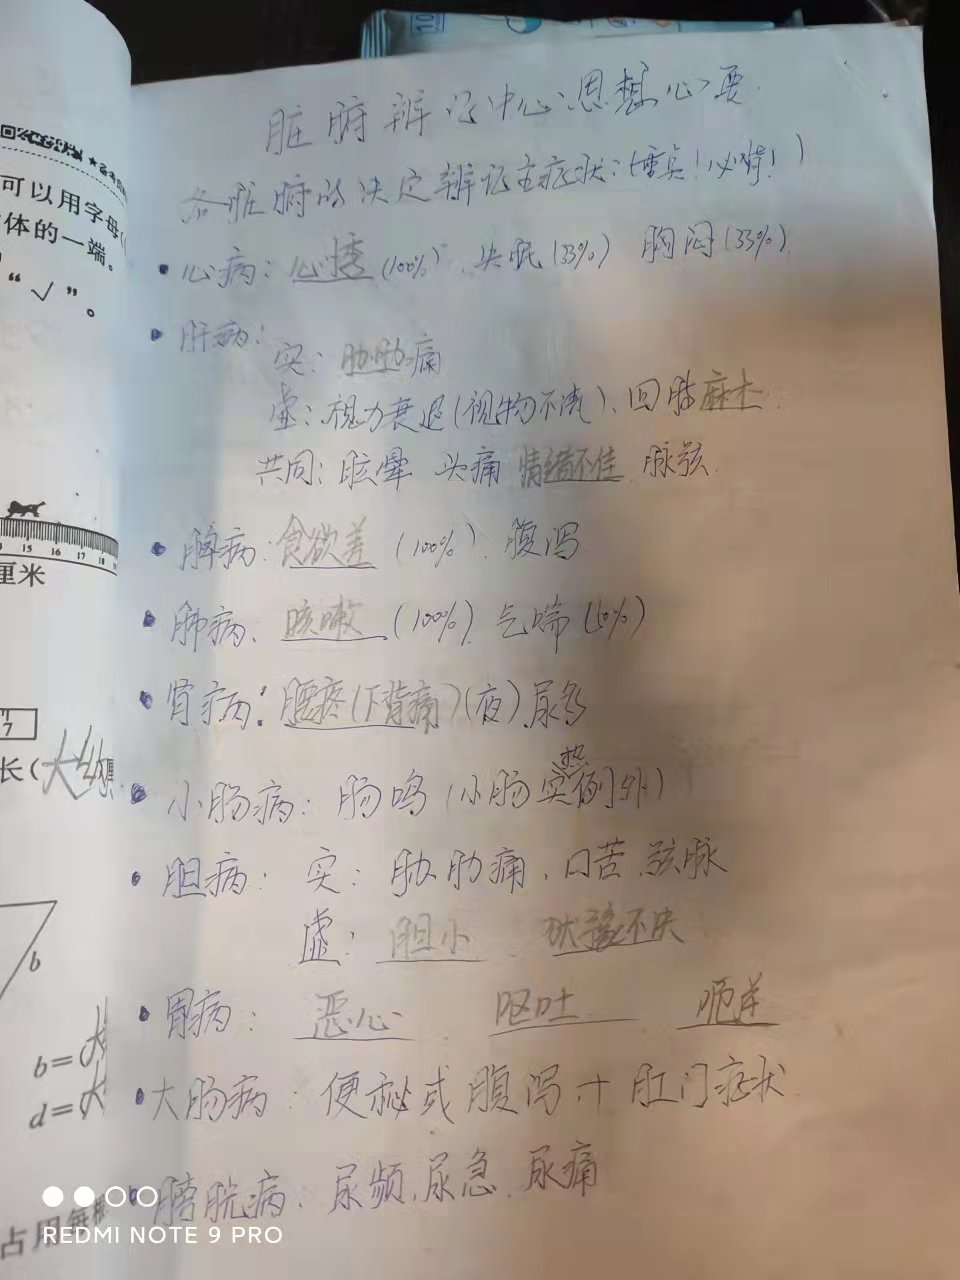 脏腑辨证中心思想心要
各脏腑的决定辨证主症状:(重点!必背!)
心病: 心悸(100%)、失眠(33%) 胸闷(33%)
肝病:
实: 胁肋痛
虚: 视力衰退(视物不清)、四肢麻木
共同: 眩晕 头痛 情绪不佳 脉弦
脾病: 食欲差(100%)、腹泻
肺病: 咳嗽(100%) 气喘
肾病: 腰疼(下背痛)(夜)尿多
小肠病: 肠鸣(小肠实热例外)
胆病: 实: 胁肋痛、口苦、弦脉
虚: 胆小 犹豫不决
胃病: 恶心 呕吐 呃逆
大肠病: 便秘或腹泻+肛门症状
膀胱病: 尿频、尿急、尿痛
可以用字母(
体的一端。
“√”。
15 16 17 18
厘米
7
长(
b
b=
d=
占用每
REDMI NOTE 9 PRO